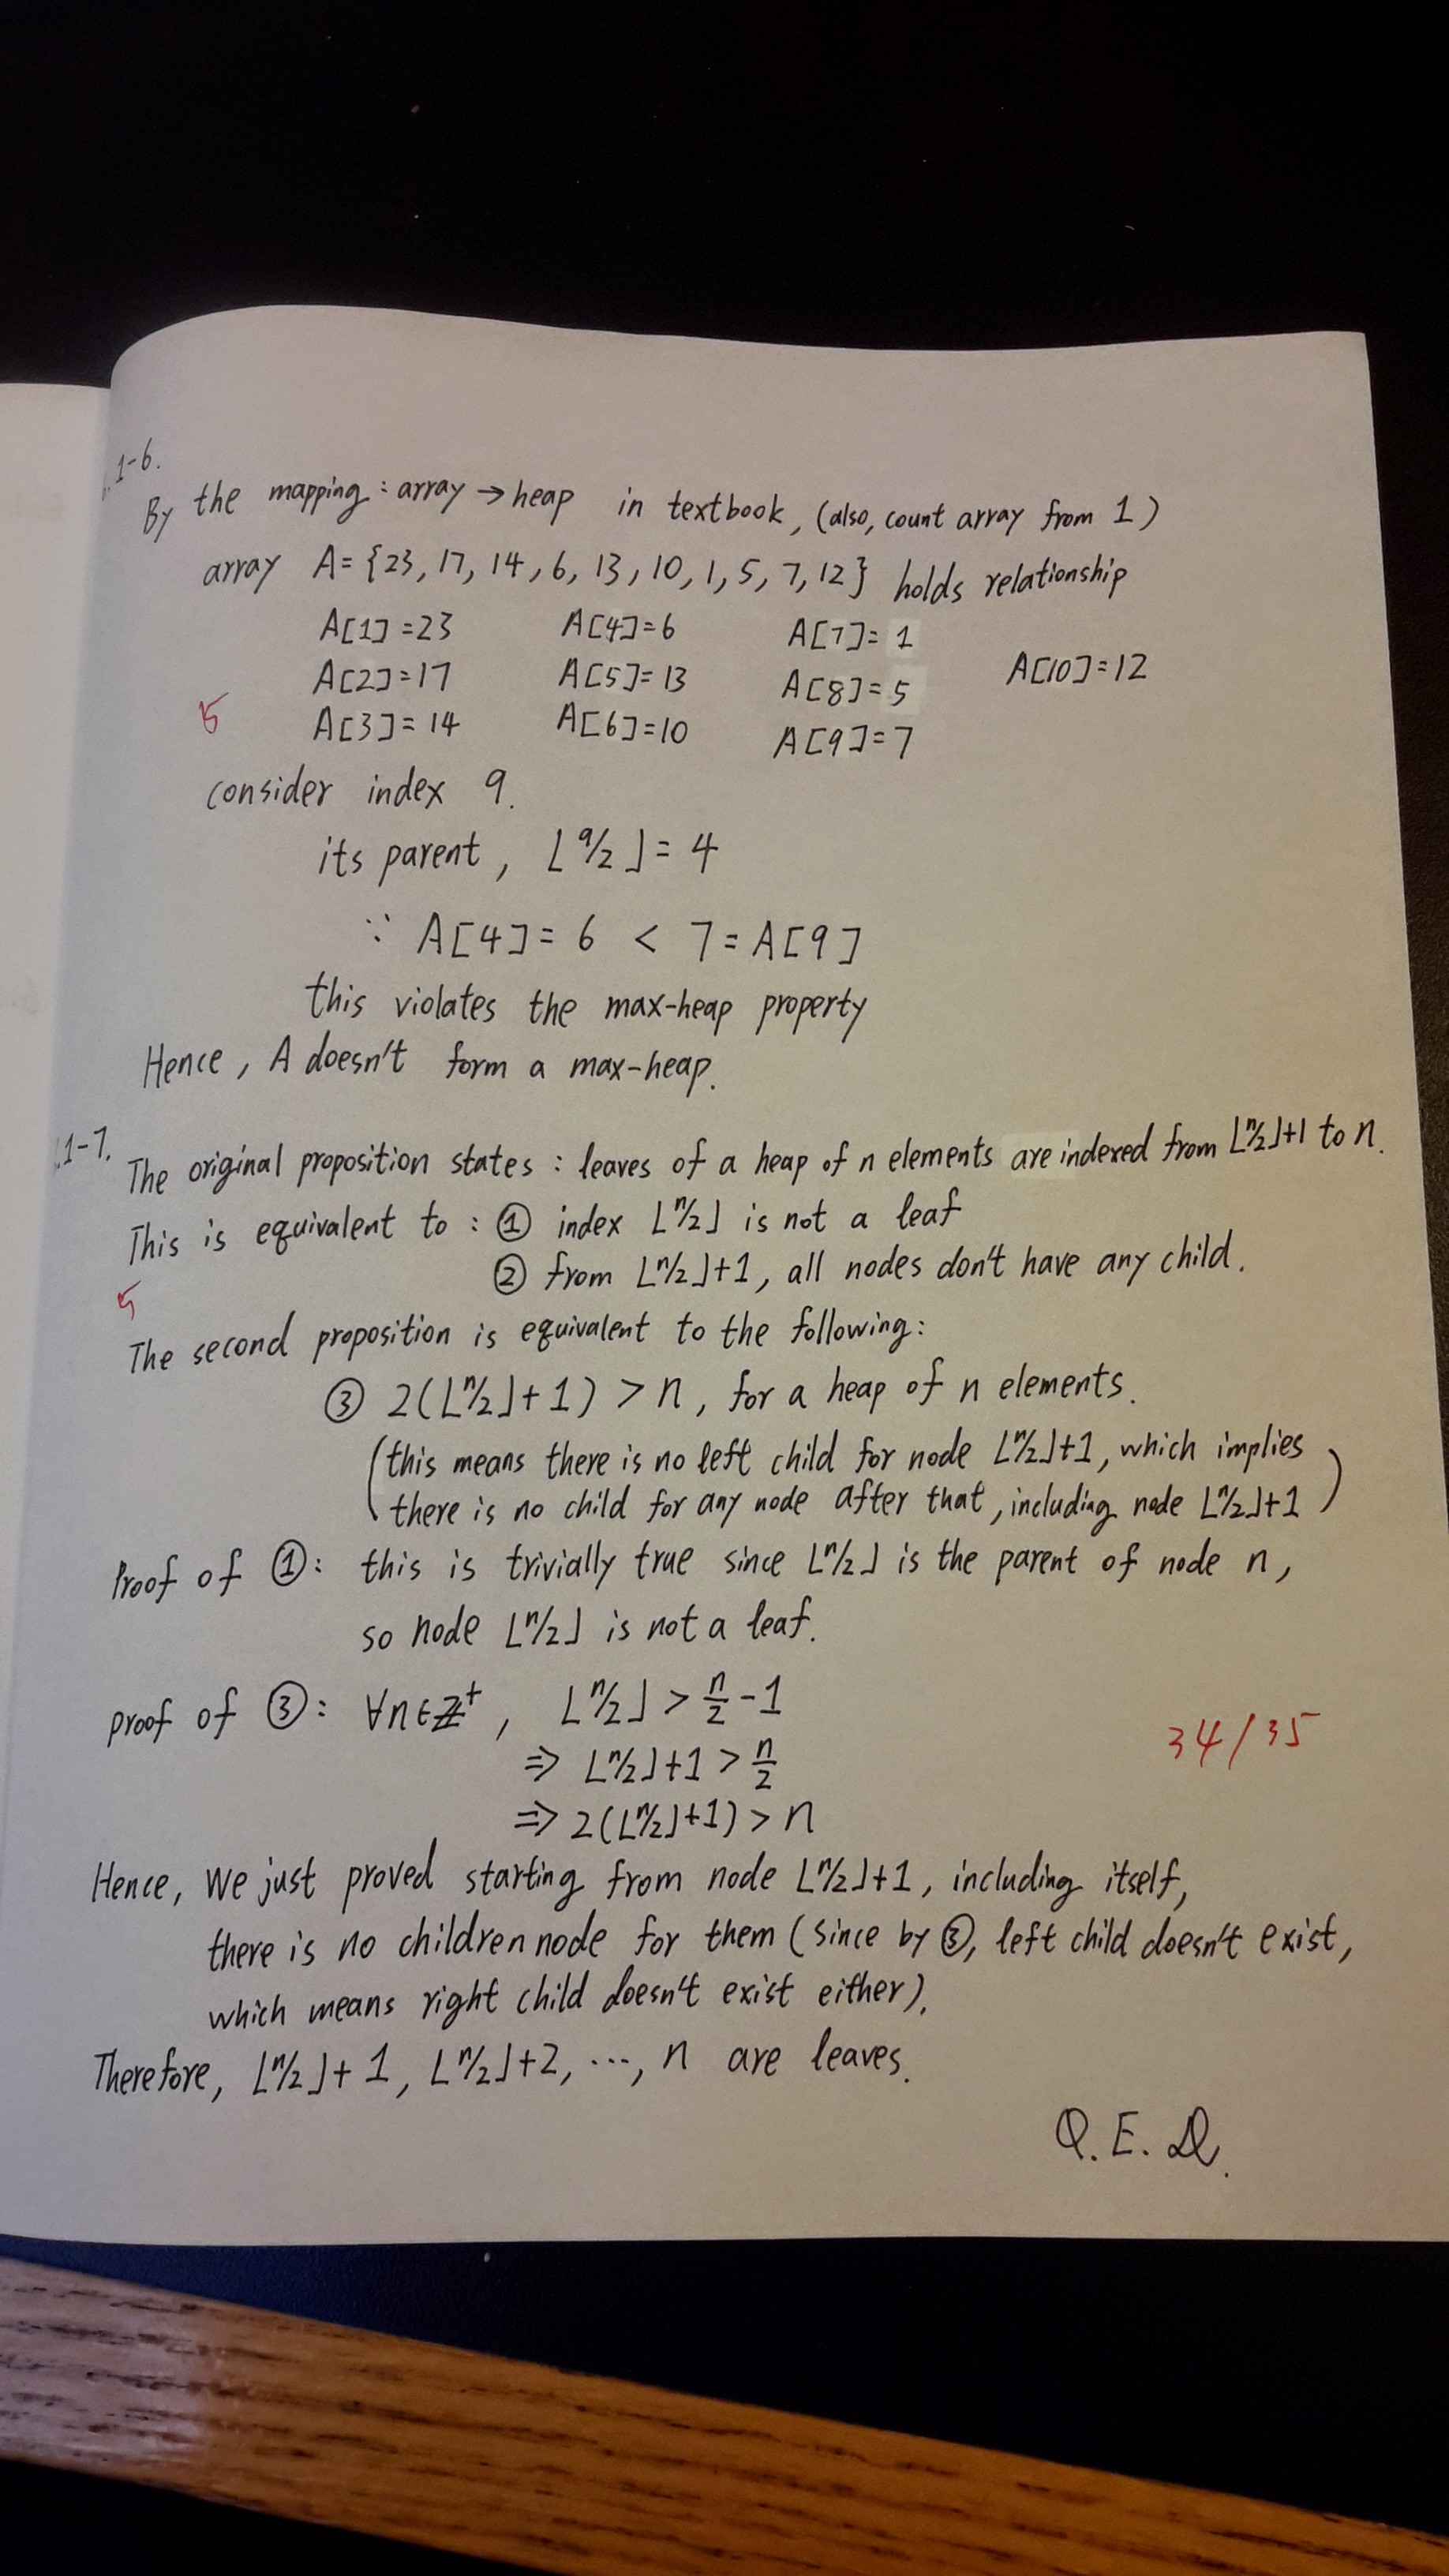 1-6.
By the mapping: array → heap in textbook, (also, count array from 1)
array A = {23, 17, 14, 6, 13, 10, 1, 5, 7, 12} holds relationship
A[1] = 23 A[4] = 6 A[7] = 1
A[2] = 17 A[5] = 13 A[8] = 5 A[10] = 12
5 A[3] = 14 A[6] = 10 A[9] = 7
consider index 9.
its parent, ⌊9/2⌋ = 4
∵ A[4] = 6 < 7 = A[9]
this violates the max-heap property
Hence, A doesn't form a max-heap.
.1-7. The original proposition states: leaves of a heap of n elements are indexed from ⌊n/2⌋+1 to n.
This is equivalent to: ① index ⌊n/2⌋ is not a leaf
② from ⌊n/2⌋+1, all nodes don't have any child.
5
The second proposition is equivalent to the following:
③ 2(⌊n/2⌋+1) > n, for a heap of n elements.
(this means there is no left child for node ⌊n/2⌋+1, which implies
there is no child for any node after that, including node ⌊n/2⌋+1)
Proof of ①: this is trivially true since ⌊n/2⌋ is the parent of node n,
so node ⌊n/2⌋ is not a leaf.
proof of ③: ∀n∈ℤ⁺, ⌊n/2⌋ > n/2 - 1
⇒ ⌊n/2⌋+1 > n/2
34/35
⇒ 2(⌊n/2⌋+1) > n
Hence, We just proved starting from node ⌊n/2⌋+1, including itself,
there is no children node for them (since by ③, left child doesn't exist,
which means right child doesn't exist either).
Therefore, ⌊n/2⌋+1, ⌊n/2⌋+2, ..., n are leaves.
Q.E.D.